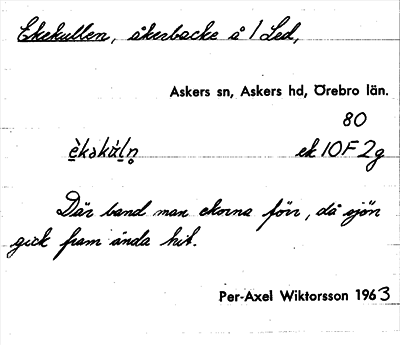 Ekekullen, åkerbacke å 1 Led,
Askers sn, Askers hd, Örebro län.
80
èkəkùl̥n̥ ek 10F2g
Där band man ekorna förr, då sjön
gick fram ända hit.
Per-Axel Wiktorsson 1963